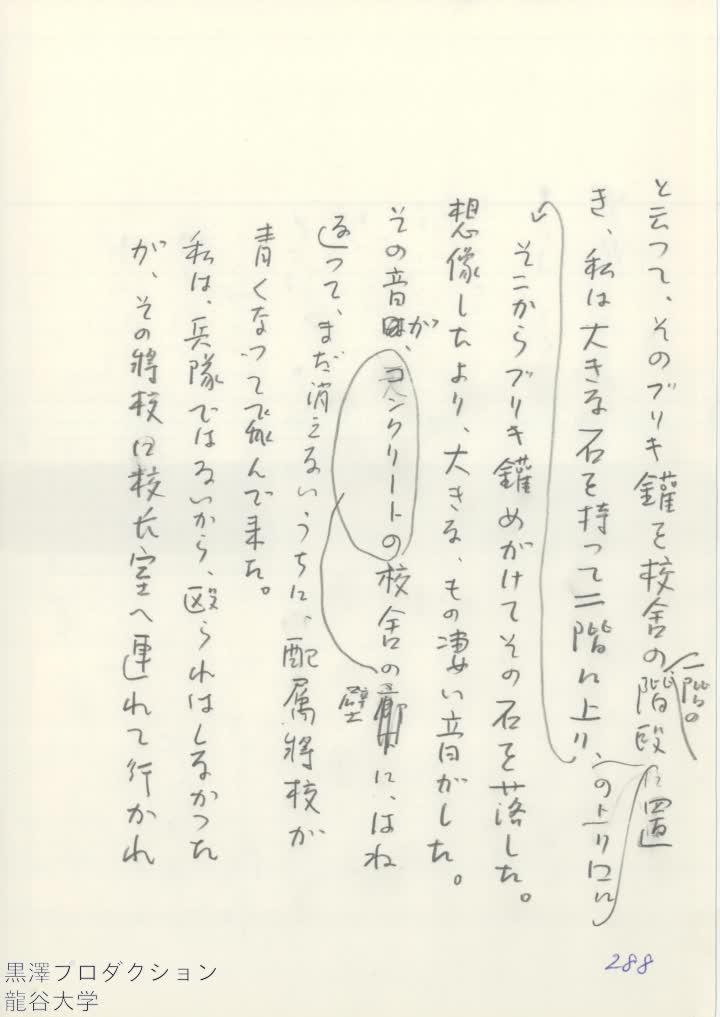 と云つて、そのブリキ鑵を校舎の一階の階段の上り口に置
き、私は大きな石を持つて二階に上り、
そこからブリキ鑵めがけてその石を落した。
想像したより、大きな、もの凄い音がした。
その音が、校舎のコンクリートの壁に、はね
返つて、まだ消えないうちに、配属將校が
青くなつて飛んで来た。
私は、兵隊ではないから、殴られはしなかつた
が、その將校に校長室へ連れて行かれ
288
黒澤プロダクション
龍谷大学